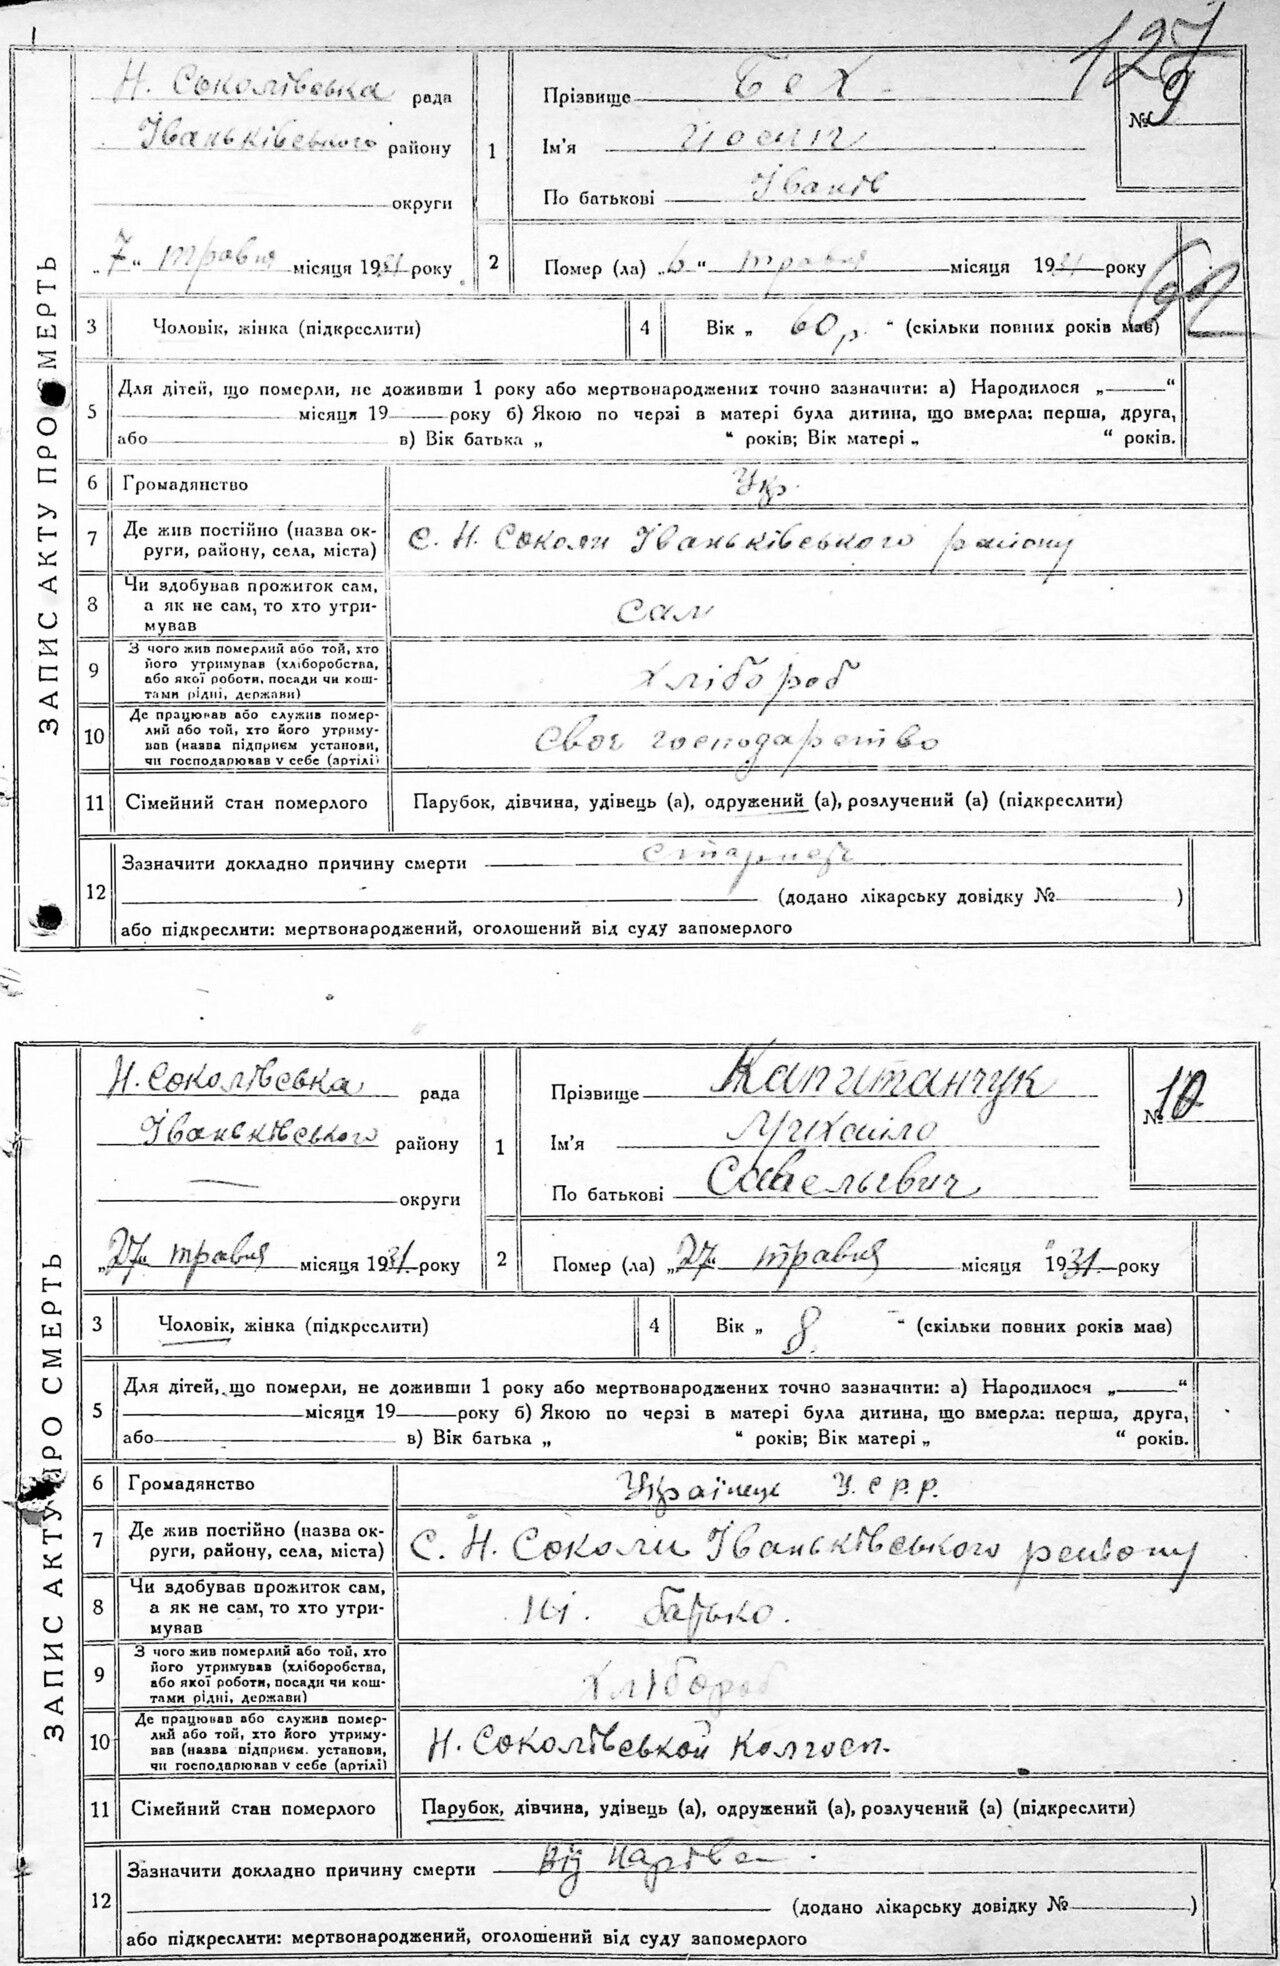 127
ЗАПИС АКТУ ПРО СМЕРТЬ
Н. Соколівська рада
Іваньківського району
округи
„7“ травня місяця 1931 року
1
Прізвище Бех
Ім'я Йосип
По батькові Іванів
№ 9
2
Помер (ла) „6“ травня місяця 1931 року
3
Чоловік, жінка (підкреслити)
4
Вік „ 60 р. “ (скільки повних років мав)
5
Для дітей, що померли, не доживши 1 року або мертвонароджених точно зазначити: а) Народилося „ “
місяця 19 року б) Якою по черзі в матері була дитина, що вмерла: перша, друга,
або в) Вік батька „ “ років; Вік матері „ “ років.
6
Громадянство
Укр.
7
Де жив постійно (назва ок-
руги, району, села, міста)
с. Н. Соколи Іваньківського району
8
Чи здобував прожиток сам,
а як не сам, то хто утри-
мував
сам
9
З чого жив померлий або той, хто
його утримував (хліборобства,
або якої роботи, посади чи кош-
тами рідні, держави)
хлібороб
10
Де працював або служив помер-
лий або той, хто його утриму-
вав (назва підприєм установи,
чи господарював у себе (артілі)
своє господарство
11
Сімейний стан померлого
Парубок, дівчина, удівець (а), одружений (а), розлучений (а) (підкреслити)
12
Зазначити докладно причину смерти
(додано лікарську довідку № )
або підкреслити: мертвонароджений, оголошений від суду запомерлого
ЗАПИС АКТУ ПРО СМЕРТЬ
Н. Соколівська рада
Іваньківського району
округи
„27“ травня місяця 1931. року
1
Прізвище Капитанчук
Ім'я Михайло
По батькові Савельевич
№ 10
2
Помер (ла) „27“ травня місяця 1931. року
3
Чоловік, жінка (підкреслити)
4
Вік „ 8. “ (скільки повних років мав)
5
Для дітей, що померли, не доживши 1 року або мертвонароджених точно зазначити: а) Народилося „ “
місяця 19 року б) Якою по черзі в матері була дитина, що вмерла: перша, друга,
або в) Вік батька „ “ років; Вік матері „ “ років.
6
Громадянство
Українець У.С.Р.Р.
7
Де жив постійно (назва ок-
руги, району, села, міста)
С. Н. Соколи Іваньківського району
8
Чи здобував прожиток сам,
а як не сам, то хто утри-
мував
Ні. батько.
9
З чого жив померлий або той, хто
його утримував (хліборобства,
або якої роботи, посади чи кош-
тами рідні, держави)
Хлібороб
10
Де працював або служив помер-
лий або той, хто його утриму-
вав (назва підприєм. установи,
чи господарював у себе (артілі)
Н. Соколівской колгосп.
11
Сімейний стан померлого
Парубок, дівчина, удівець (а), одружений (а), розлучений (а) (підкреслити)
12
Зазначити докладно причину смерти Від
(додано лікарську довідку № )
або підкреслити: мертвонароджений, оголошений від суду запомерлого